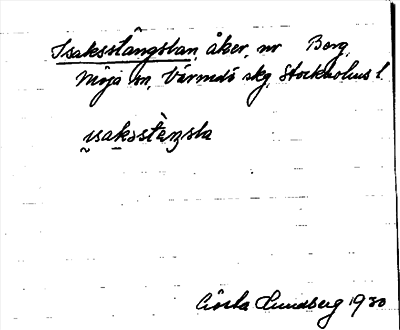 Isaksstängslan, åker, nr Berg,
Möja sn, Värmdö skg, Stockholms l.
ɩsaksstɛ̀ŋsla
Gösta Lundberg 1930